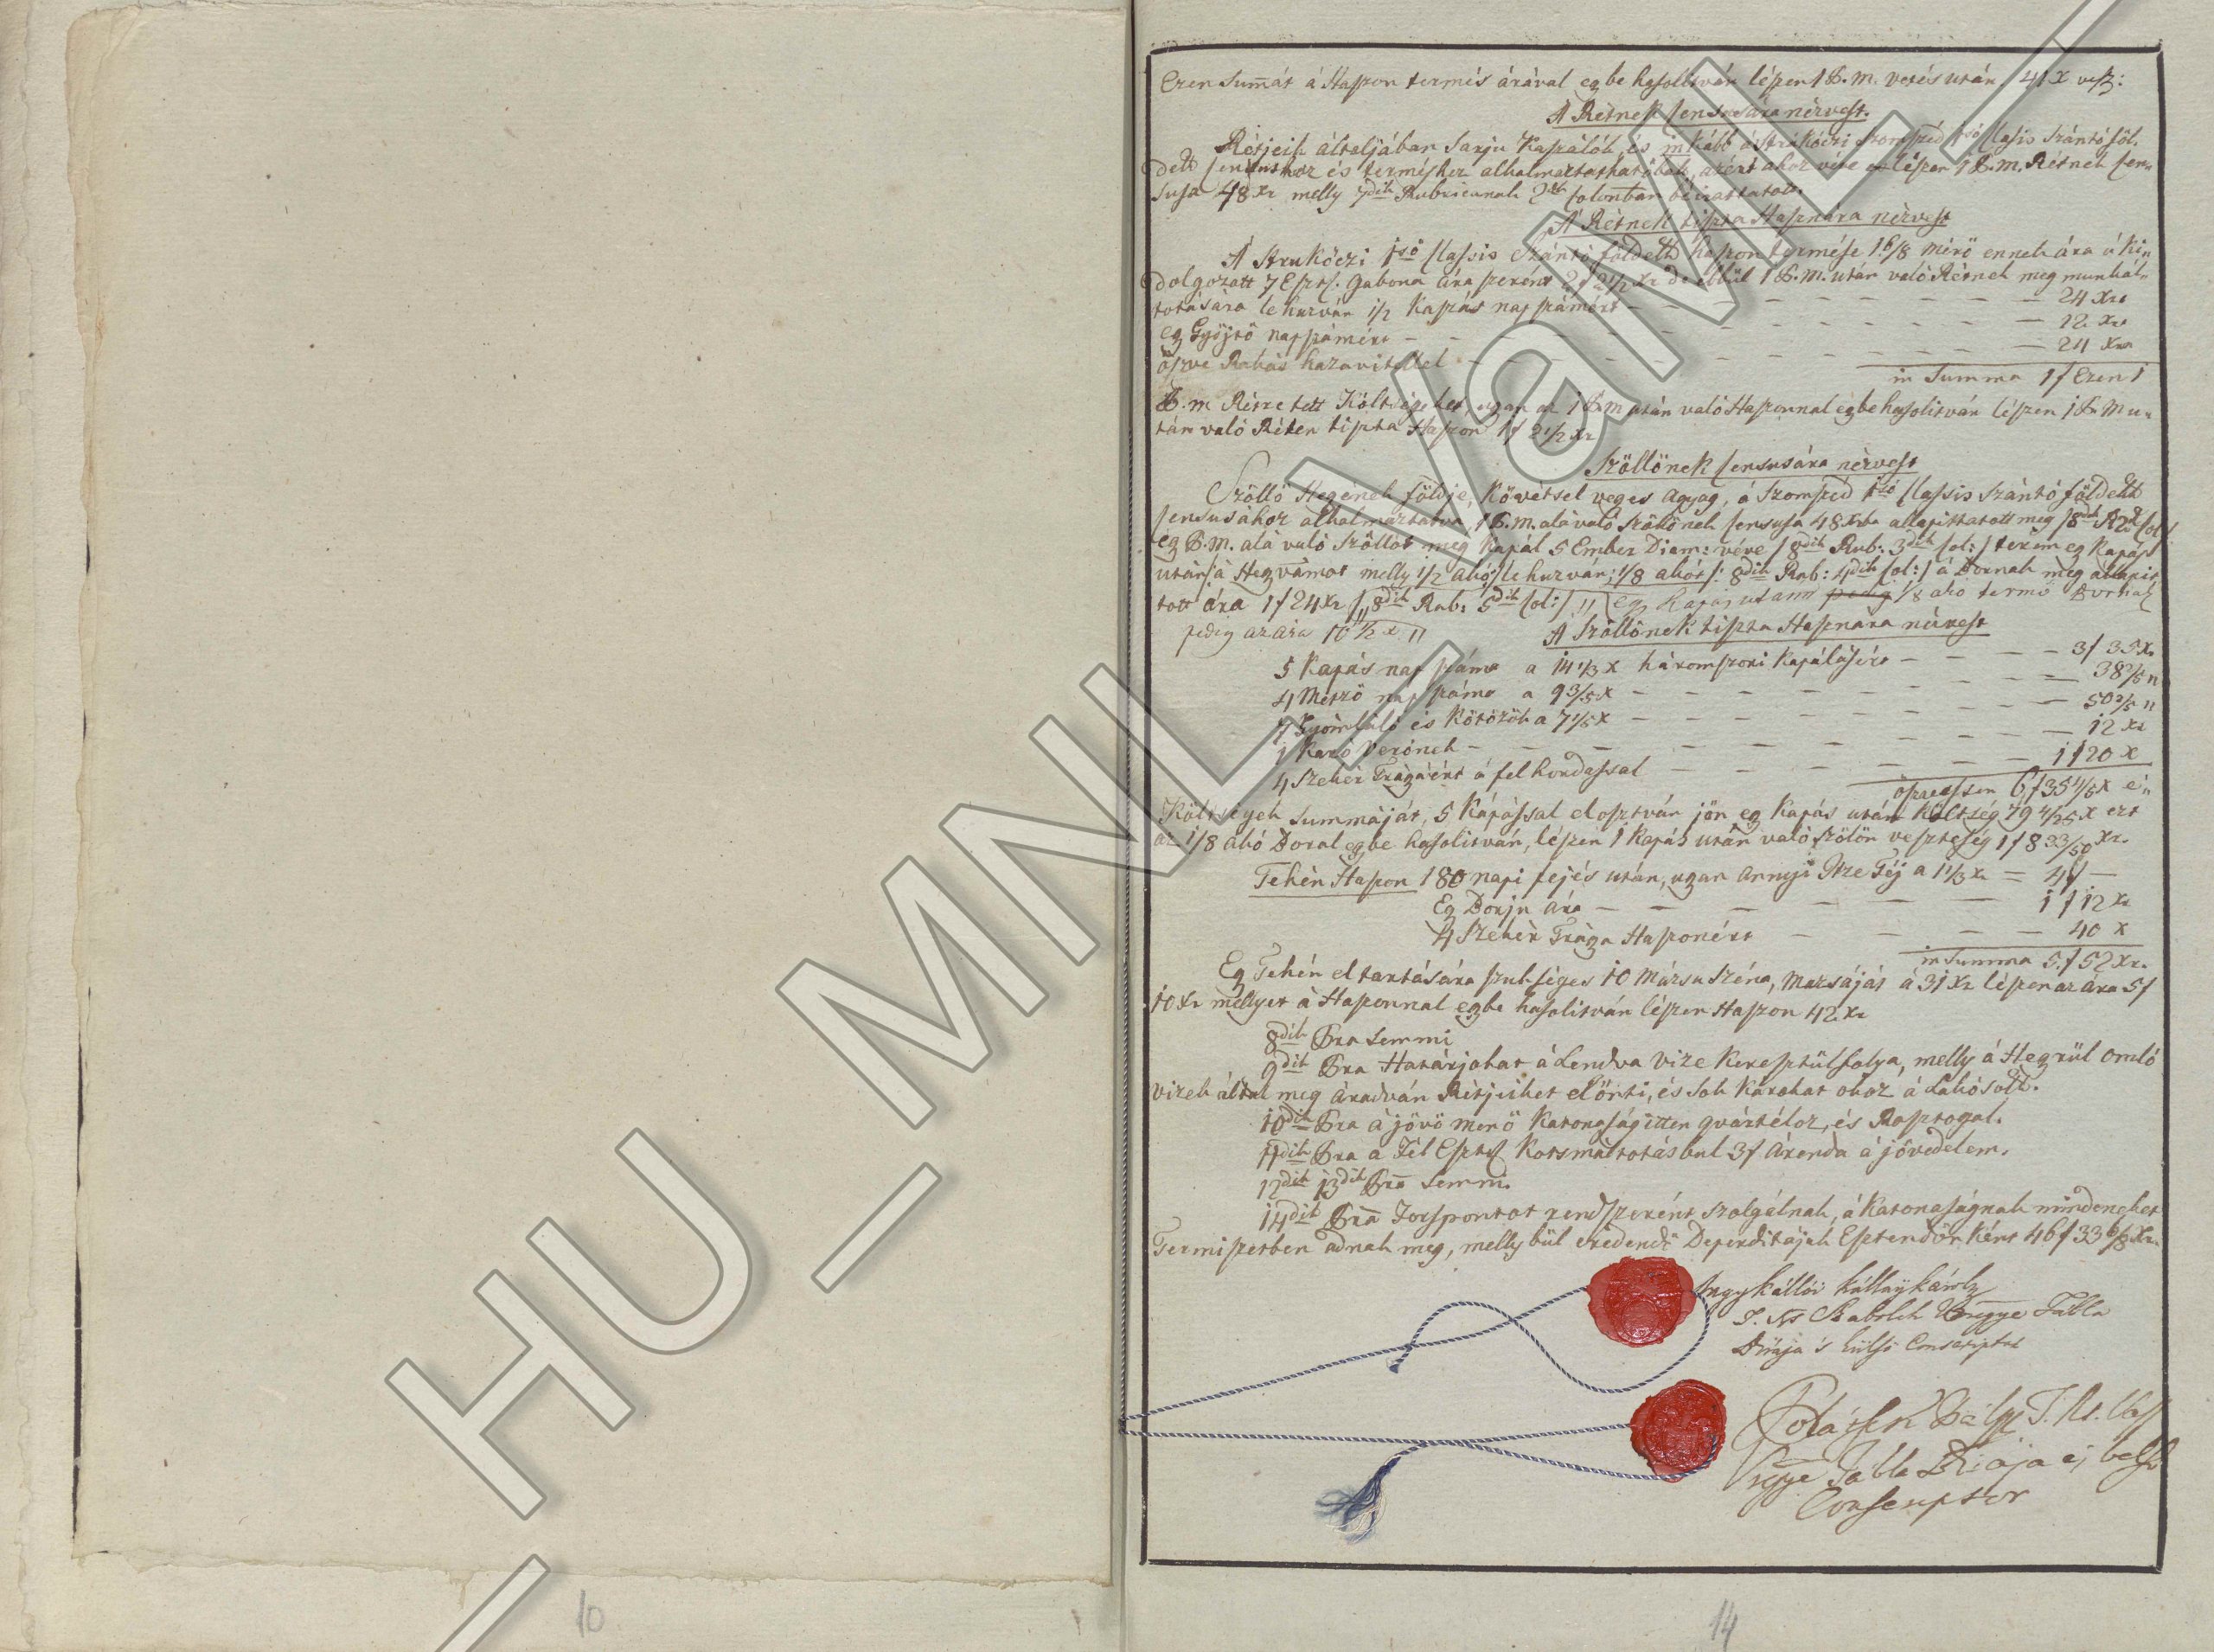 Ezen Sum̄át á Haszon termés árával egbe hasolitván lészen 1 P.m. vetés után 41 X vesz:
A Rétnek Censusára nézvest.
Rétjeik általjában Sarju Kaszálók, és inkább á Strukóczi Szomszéd 1ső Classis Szántó föl-
dek Censushoz és terméshez alkalmaztathatóbak, azért ahoz véve lészen 1 P.m. Rétnek Cen-
susa 48 Xr melly 7dik Rubricanak 2dik Colom̄ban béirattatott.
A Rétnek tiszta Hasznára nézvest
A Strukóczi 1ső Classis Szántó földek haszon termése 1 6/8 mérő ennek ára á Ki-
dolgozott 7 Eszt. gabona ára szerént 2f 2 1/2 Xr de ebbül 1 P.m. után való Rétnek meg munkál-
totására le huzván 1/2 Kaszás nap számért — 24 Xr.
eg Gyüjtő napszámért — 12 Xr.
öszve Rakás hazavitellel — 24 Xr.
in Summa 1f Ezen 1
P.m Rétre tett Költségeket, ugan az 1 P.m után való Haszonnal egbe hasolitván lészen 1 P.M u-
tán való Réten tiszta Haszon 1f 2 1/2 Xr
Szöllönek Censusára nézvest
Szöllö Hegének földje, Kövétsel veges agyag, á Szomszéd 1ső Classis Szántó földek
Censusához alkalmaztatva, 1 P.m. alá való Szölönek Censusa 48 Xrba allapittatott meg /8dik R 2dik Col/
eg P.M. alá való Szöllöt meg Kapál 5 Ember Diem: véve / 8dik Rub: 3dik Col:/ terem eg Kapás
után /:á Hegvámot melly 1/2 akó:/ le huzván: 1/8 akót /: 8dik Rub: 4dik Col:/ á Bornak meg allapit
tott ára 1f 24 Xr /„8dik Rub: 5dik Col:/ „ eg Kapás utann pedig 1/8 akó termö Bornak
pedig az ára 10 1/2 x „
A Szöllönek tiszta Hasznara nézvest
5 Kapás nap száma a 14 1/3 X háromszori Kapálásért — 3f 35 X.
4 Metzö nap száma a 9 3/5 X — 38 2/5 „
7 Gyomláló és Kötözök a 7 1/5 X — 50 2/5 „
1 Karó Verönek — 12 Xr
4 Szekér Trágáért á fel hordassal — 1f 20 X
öszvessen 6f 35 4/5 X é-
Költségek Summáját, 5 Kápással elosztván jön eg Kapás után Költség 79 4/25 X ezt
az 1/8 Akó Boral egbe hasolitván, lészen 1 Kapás után való Szölön veszteség 1f 8 33/50 Xr.
Tehén Haszon 180 napi fejés után, ugan annyi Itze Téj a 1 1/3 Xr = 4f —
Eg Borju ára — 1f 12 Xr
4 Szekér Trága Haszonért — 40 X
in Summa 5f 52 Xr.
Eg Tehén el tartására szukséges 10 Mázsa Széna, Mazsáját á 31 Xr lészen az ára 5f
10 Xr mellyet á Haszonnal egbe hasolitván lészen Haszon 42 Xr
8dik Pra Semmi
9dik Pra Határjokat á Lendva vize Keresztülfolya, melly á Hegrül omló
vizek által meg áradván Rétjeiket elönti, és sok Károkat okoz á Lakósokk.
10dik Pra á jövö menö Katonaság itten qvártéloz, és Rasztogal.
11dik Pra a Fél Eszt. Korsmáltotásbul 3f Árenda á jövedelem.
12dik 13dik Pra Semmi.
14dik Pra Forspontot rendszerént szolgálnak, á Katonaságnak mindeneket
Termiszetben adnak meg, melly bül eredendö Deperditájak Esztendön Ként 46f 33 6/8 Xr.
Nagy Kállói Kállay Károly
T. Ns Szabolch Vmegye Tábla
Birája 's külsö Conscriptor
Potátsek Bálys T. Ns. Vas
Vmgye Tábla Birája és belsö
Conscriptor
10
14
HU_MNL_VaML_